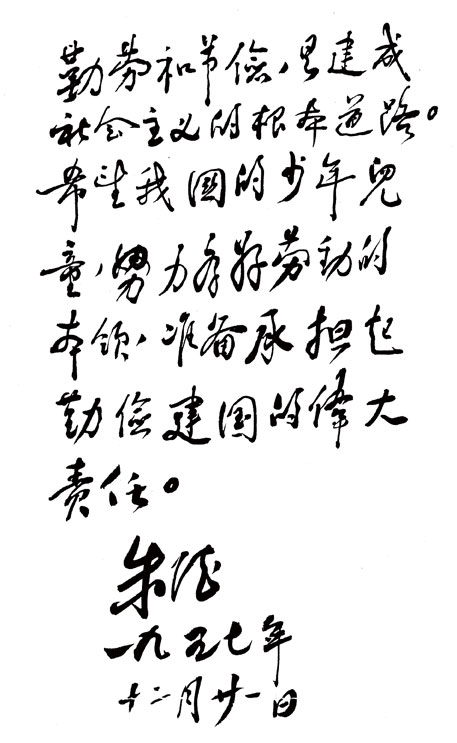 勤劳和节儉，是建成
社会主义的根本道路。
希望我國的少年兒
童，努力学好劳動的
本领，准备承担起
勤儉建国的偉大
责任。
朱德
一九五七年
十二月廿一日